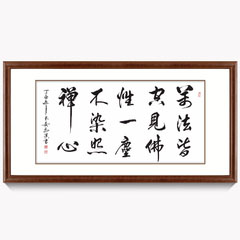 萬法皆
空見佛
性一塵
不染照
禪心
丁酉年